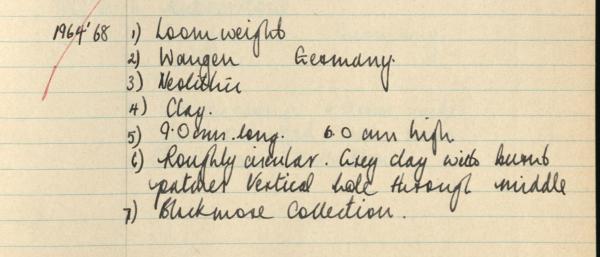 1964'68 1) Loomweight
2) Wangen Germany.
3) Neolithic
4) Clay.
5) 9.0 cms. long. 6.0 cm high
6) Roughly circular. Grey clay with burnt
patches Vertical hole through middle
7) Blackmore Collection.